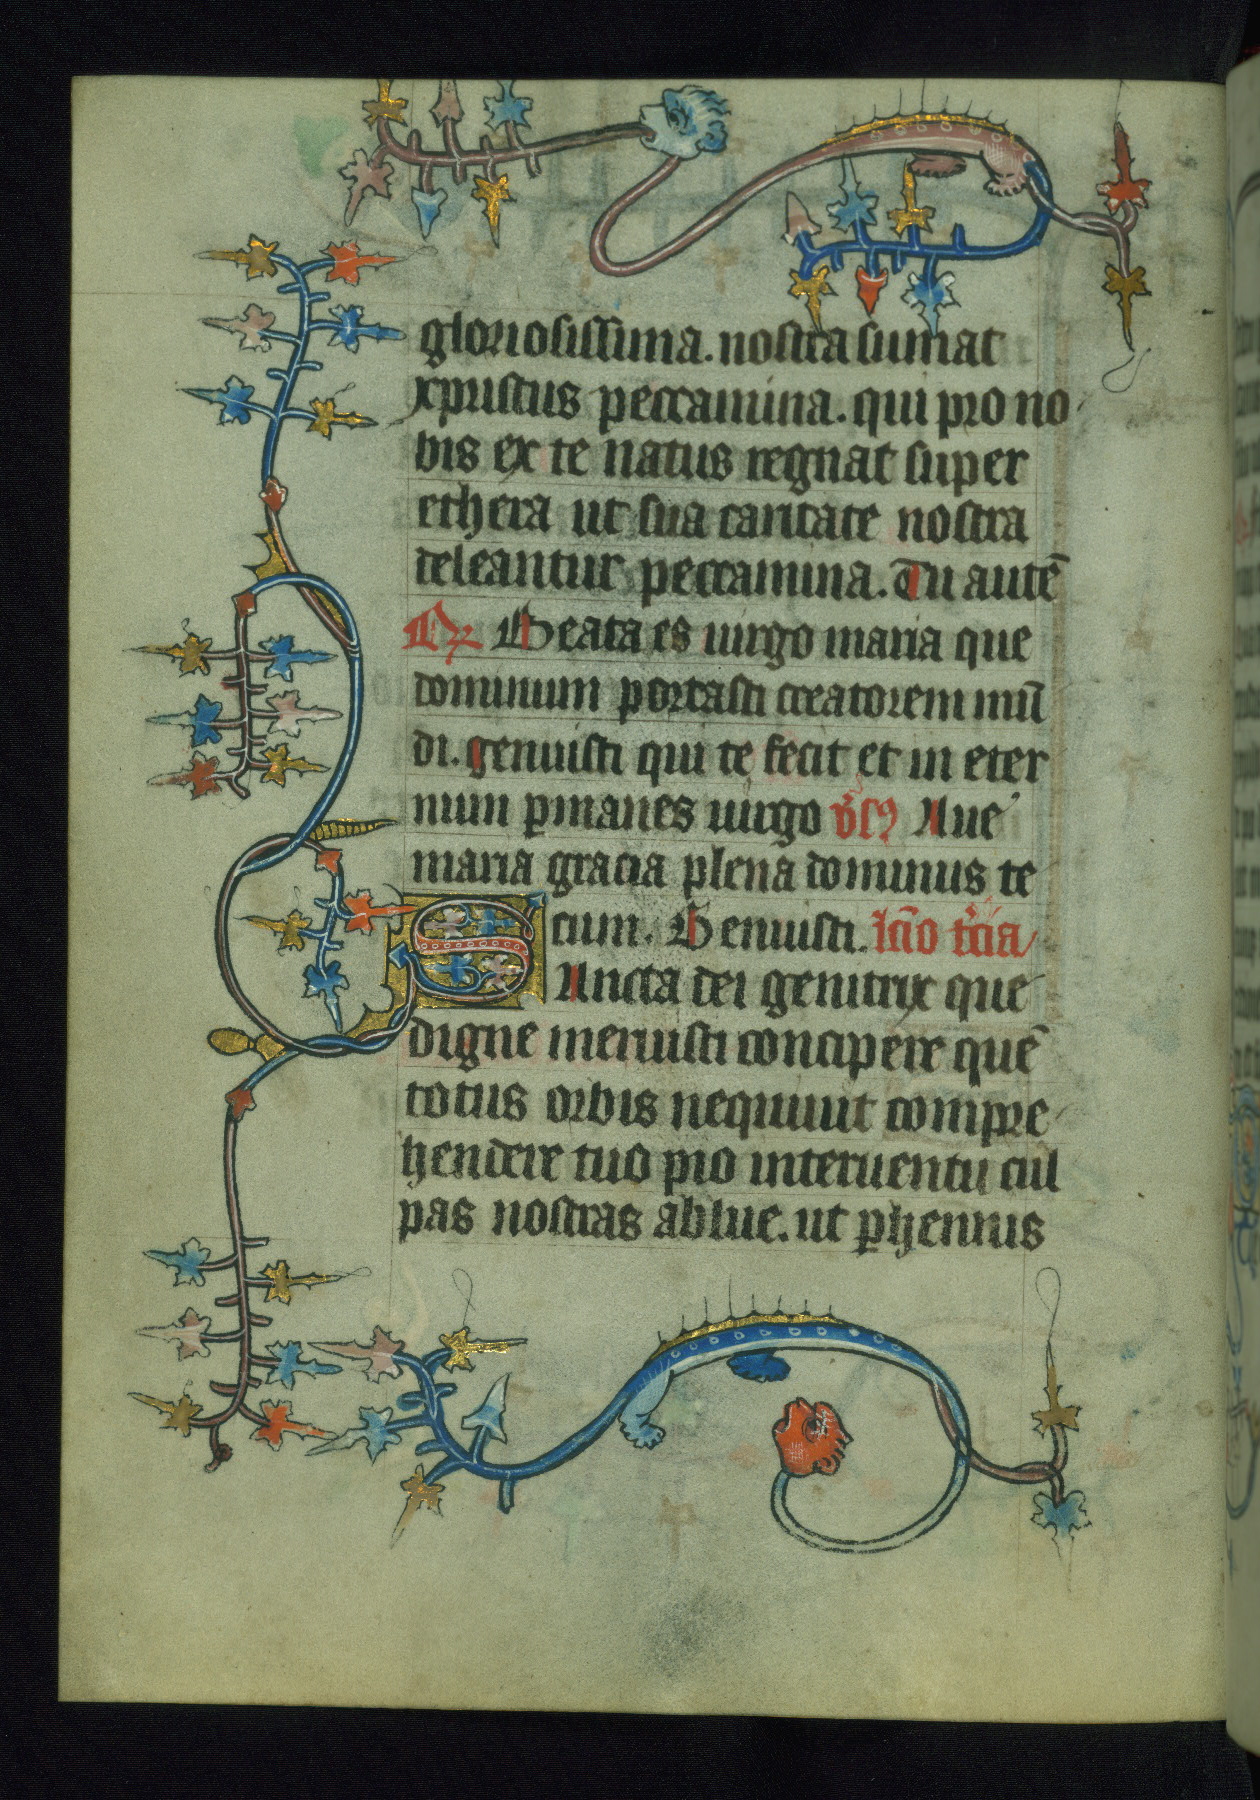 gloriosissima. nostra sumat
xpristus peccamina. qui pro no
bis ex te natus regnat super
ethera ut sua caritate nostra
deleantur peccamina. Tu autē
R̷ Beata es uirgo maria que
dominum portasti creatorem mū
di. genuisti qui te fecit et in eter
num ꝑmanes uirgo v̄s Aue
maria gracia plena dominus te
cum. Genuisti. lc̄io t͛cia
SAncta dei genitrix que
digne meruisti concipere quē
totus orbis nequiuit compre
hendere tuo pio interuentu cul
pas nostras ablue. ut ꝑhennis